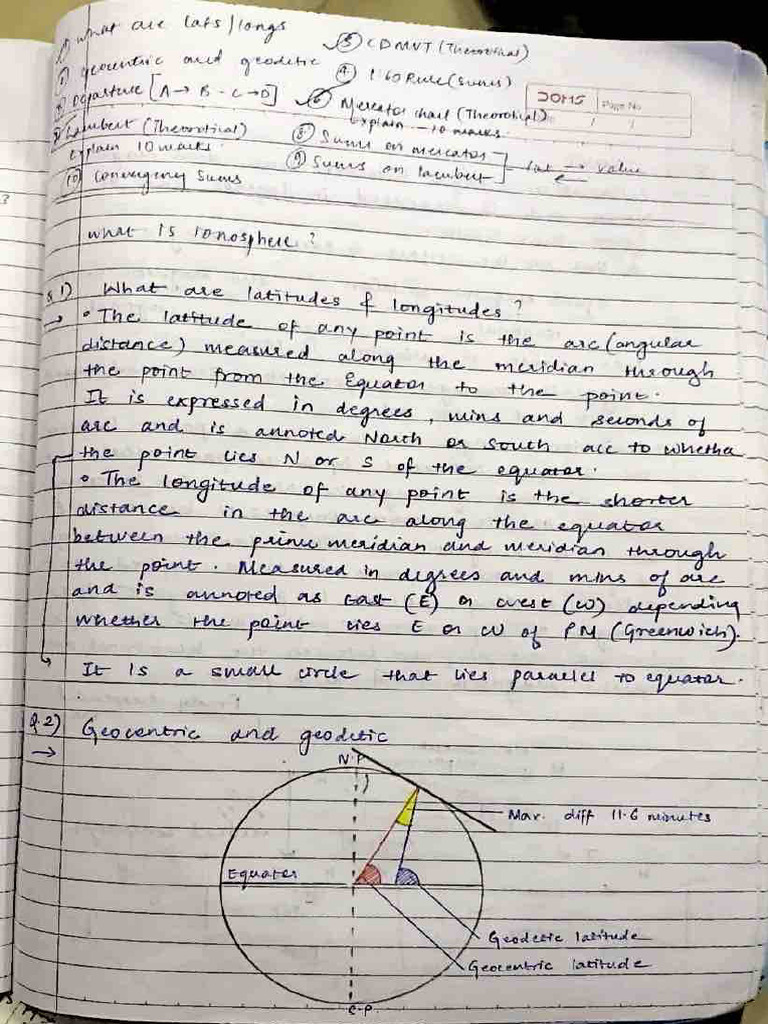 1) what are lats/longs
2) geocentric and geodetic
Departure [A → B - C → D]
Lambert (Theoretical)
explain 10 marks.
10) Convergency Sums
3) CDMVT (Theoretical)
4) 1:60 Rule (Sums)
6) Mercator chart (Theoretical)
explain - 10 marks.
8) Sums on mercator
9) Sums on lambert
lat value
DOMS
Page No.
/ /
what is ionosphere?
Q.1) What are latitudes & longitudes?
→ • The latitude of any point is the arc (angular
distance) measured along the meridian through
the point from the Equator to the point.
It is expressed in degrees, mins and seconds of
arc and is annoted North or South acc to whether
the point lies N or S of the equator.
• The longitude of any point is the shorter
distance in the arc along the equator
between the prime meridian and meridian through
the point. Measured in degrees and mins of arc
and is annoted as East (E) or West (W) depending
whether the point lies E or W of PM (Greenwich).
It is a small circle that lies parallel to equator.
Q.2) Geocentric and geodetic
→
N.P
Max. diff 11.6 minutes
Equator
Geodetic latitude
Geocentric latitude